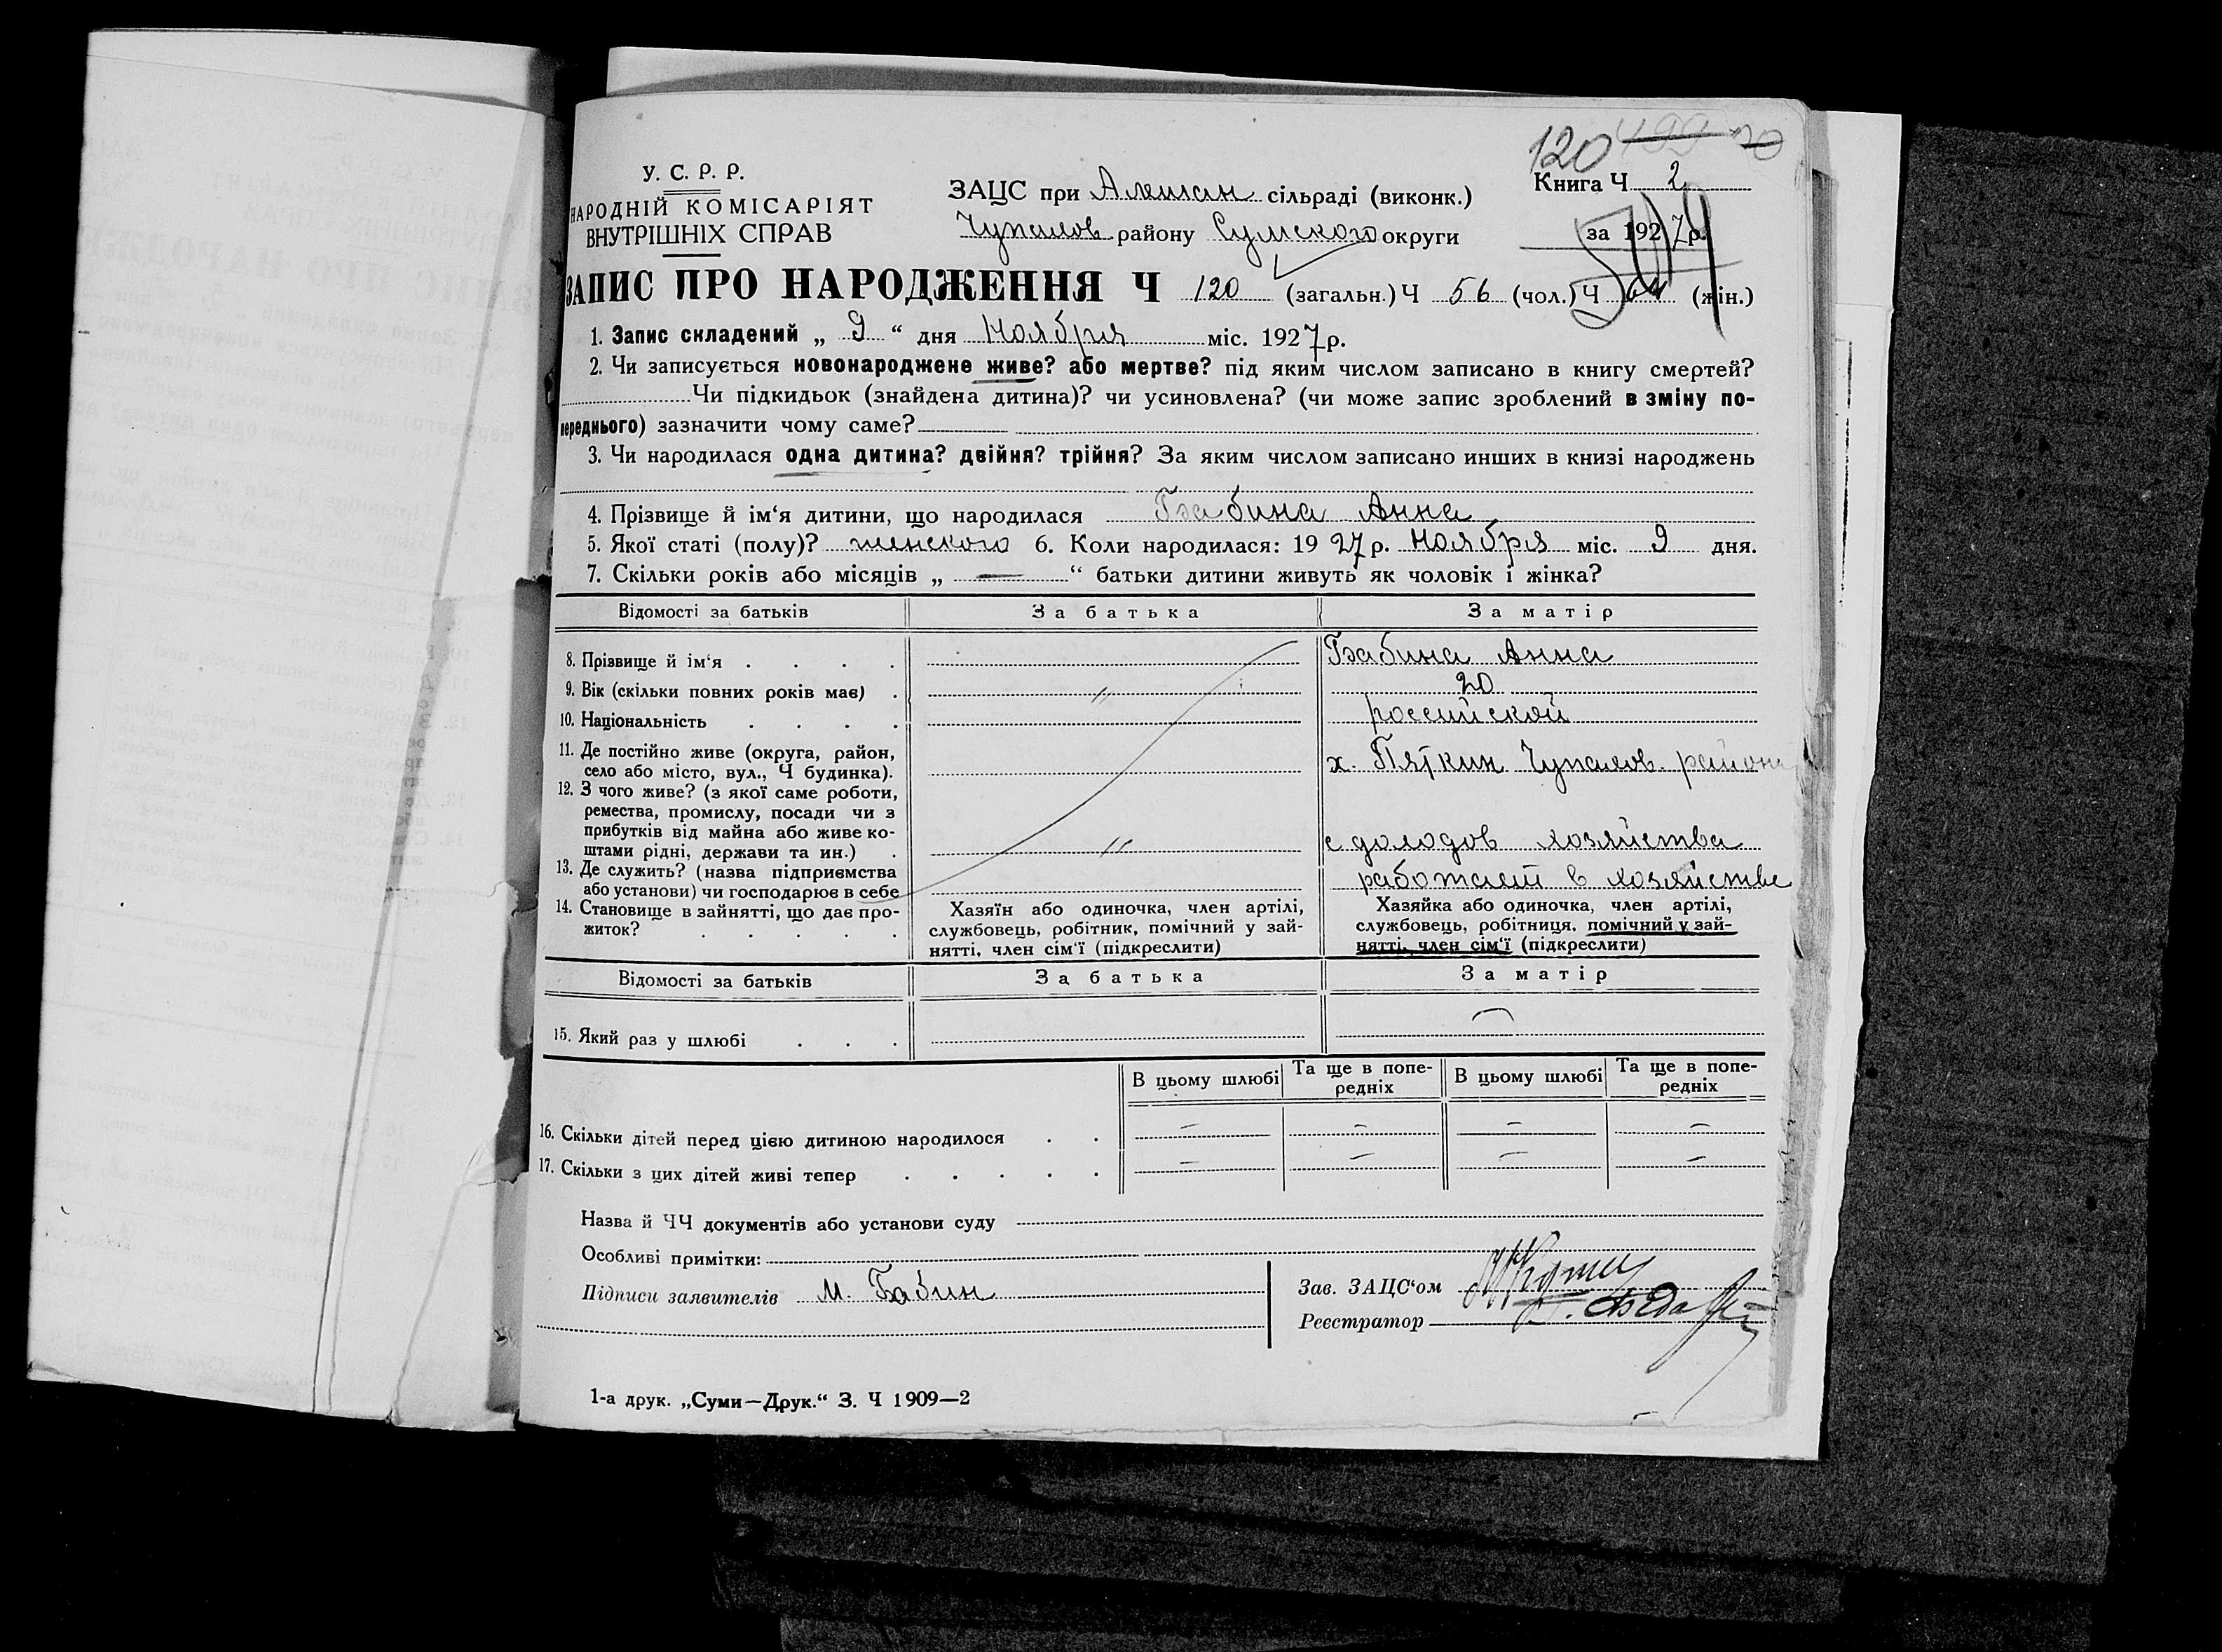 120 499 70
У. С. Р. Р.
НАРОДНІЙ КОМІСАРІЯТ
ВНУТРІШНІХ СПРАВ
ЗАЦС при Алешан сільраді (виконк.)
Чупалов району Сумского округи
Книга Ч 2
за 1927р.
504
ЗАПИС ПРО НАРОДЖЕННЯ Ч 120 (загальн.) Ч 56 (чол.) Ч 64 (жін.)
1. Запис складений „ 9 “ дня Ноября міс. 1927р.
2. Чи записується новонароджене живе? або мертве? під яким числом записано в книгу смертей?
Чи підкидьок (знайдена дитина)? чи усиновлена? (чи може запис зроблений в зміну по-
переднього) зазначити чому саме?
3. Чи народилася одна дитина? двійня? трійня? За яким числом записано инших в книзі народжень
4. Прізвище й ім‘я дитини, що народилася Бабина Анна
5. Якої статі (полу)? женского 6. Коли народилася: 1927р. Ноября міс. 9 дня.
7. Скільки років або місяців „ — “ батьки дитини живуть як чоловік і жінка?
Відомості за батьків За батька За матір
8. Прізвище й ім‘я . . . . Бабина Анна
9. Вік (скільки повних років має) . 〃 20
10. Національність . . . . российской
11. Де постійно живе (округа, район,
село або місто, вул., Ч будинка). х. Пяткин Чупалов. района
12. З чого живе? (з якої саме роботи,
ремества, промислу, посади чи з
прибутків від майна або живе ко-
штами рідні, держави та ин.) . 〃 с доходов хозяйства
13. Де служить? (назва підприємства
або установи) чи господарює в себе работает в хозяйстве
14. Становище в зайнятті, що дає про-
житок? . . . . .
Хазяїн або одиночка, член артілі,
службовець, робітник, помічний у зай-
нятті, член сім‘ї (підкреслити)
Хазяйка або одиночка, член артілі,
службовець, робітниця, помічний у зай-
нятті, член сім‘ї (підкреслити)
Відомості за батьків За батька За матір
15. Який раз у шлюбі . . . —
В цьому шлюбі Та ще в попе-
редніх В цьому шлюбі Та ще в попе-
редніх
16. Скільки дітей перед цією дитиною народилося . . — — — —
17. Скільки з цих дітей живі тепер . . . . . — — — —
Назва й ЧЧ документів або установи суду
Особливі примітки:
Підписи заявителів М. Бабин
Зав. ЗАЦС‘ом
Реєстратор
1-а друк. „Суми—Друк.“ З. Ч 1909—2